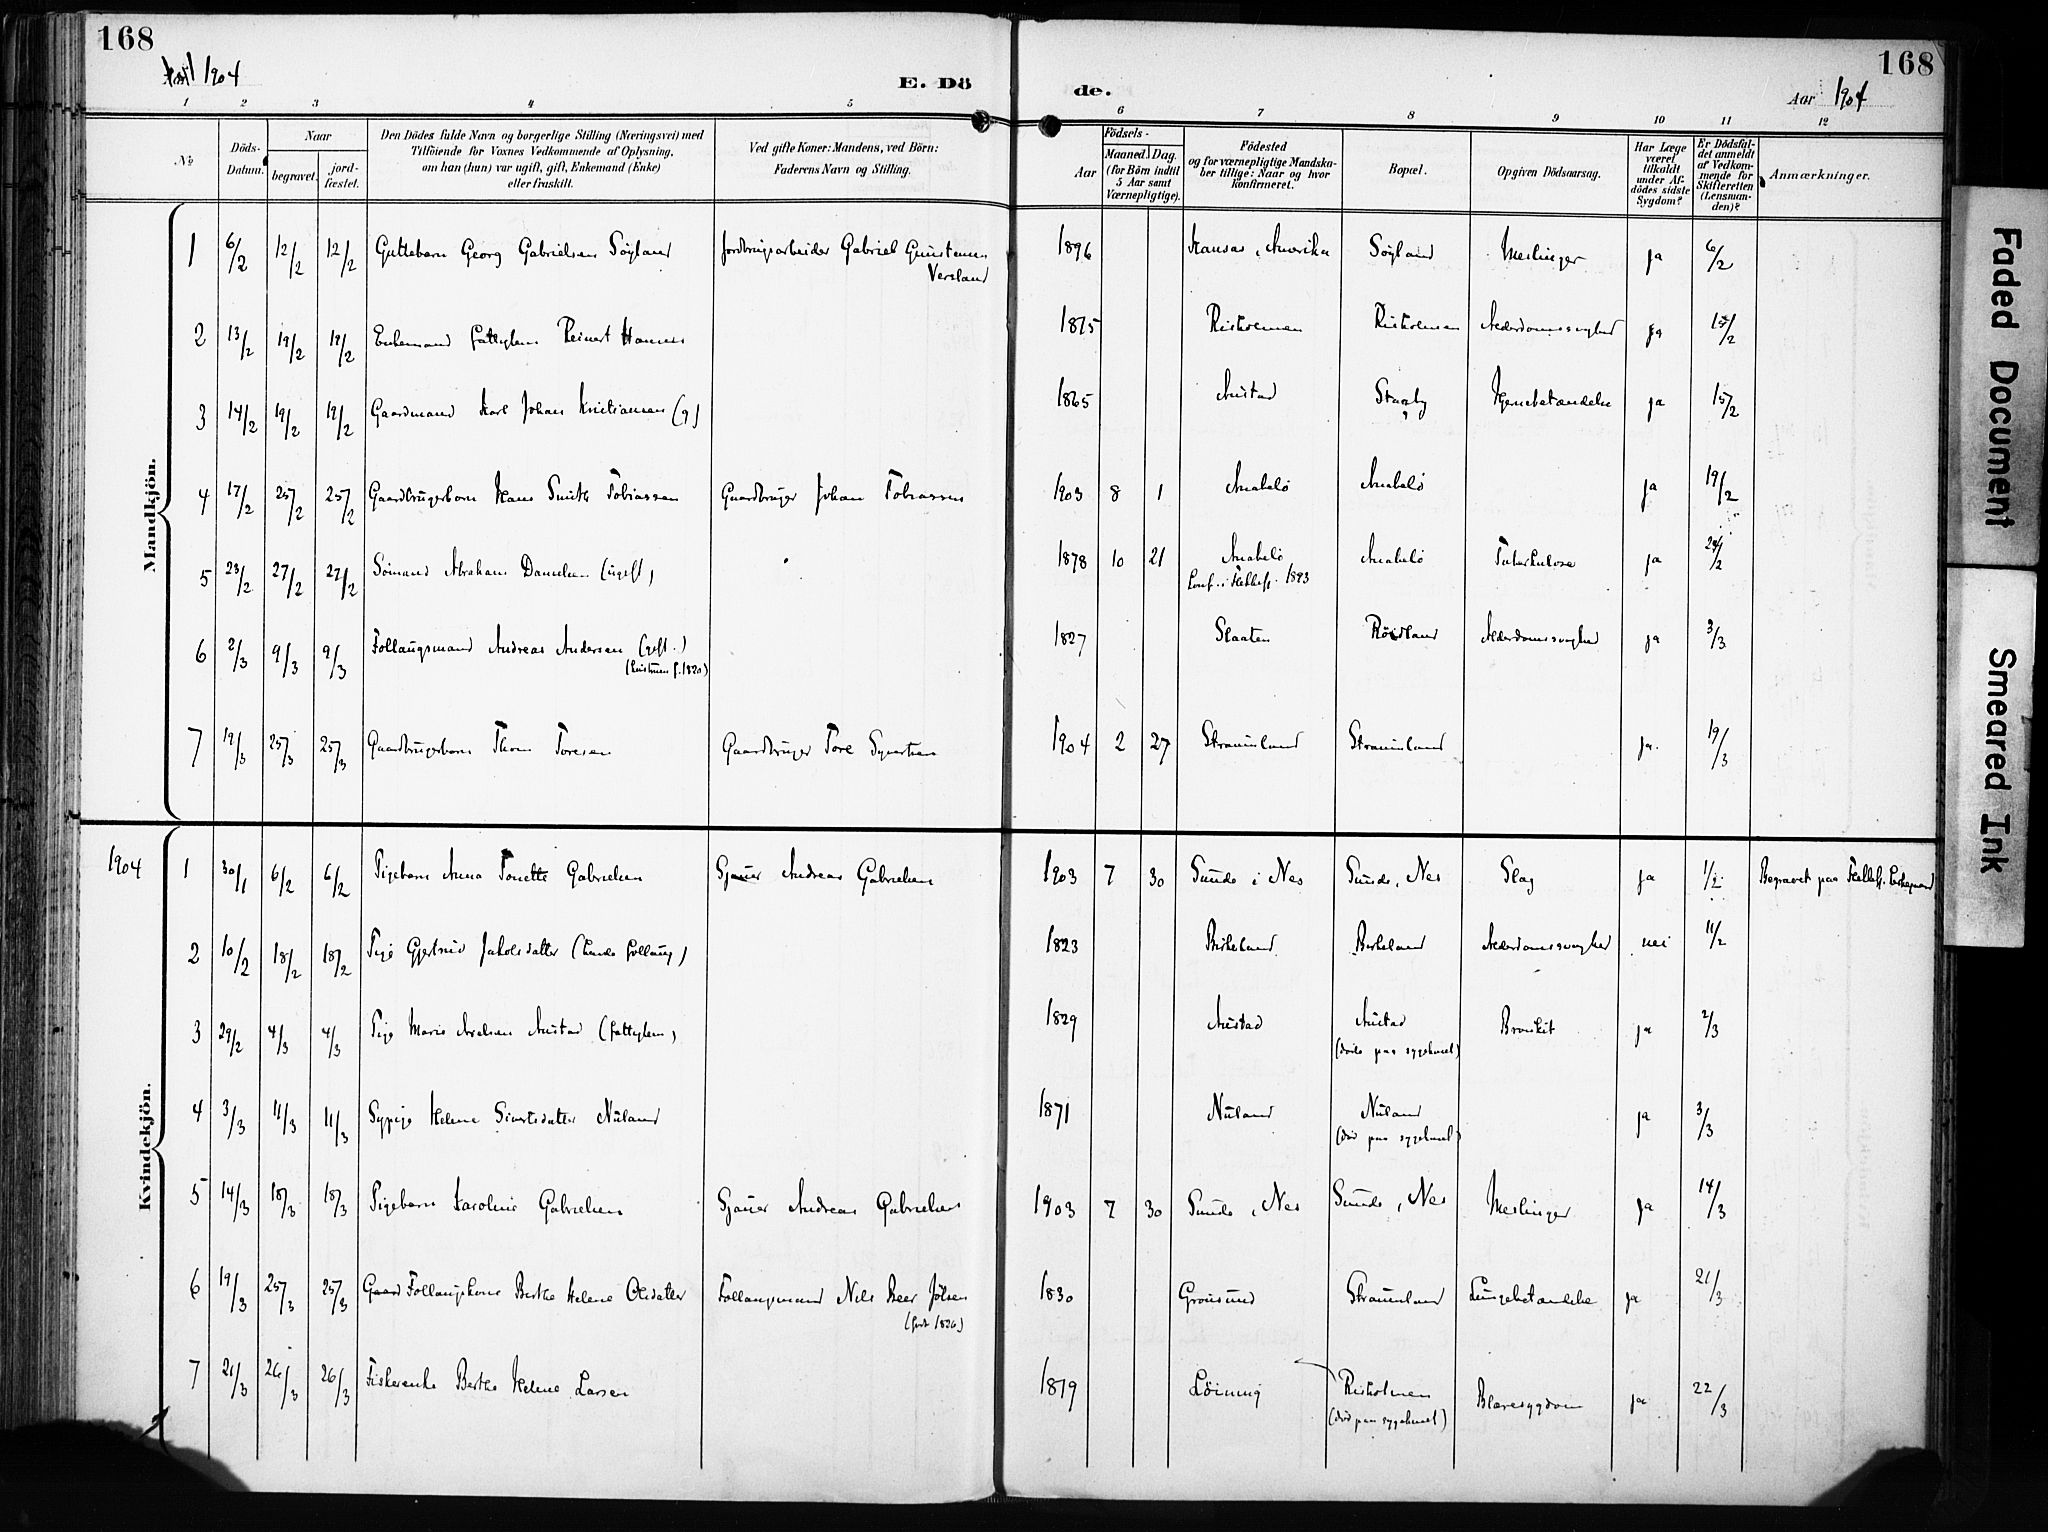 168
168
1904
E. Dö
de.
Aar 1904
1 2 3 4 5 6 7 8 9 10 11 12
№
Döds-Datum.
Naar
begravet.
jord-fæstet.
Den Dödes fulde Navn og borgerlige Stilling (Næringsvei) med
Tilföiende for Voxnes Vedkommende af Oplysning,
om han (hun) var ugift, gift, Enkemand (Enke)
eller fraskilt.
Ved gifte Koner: Mandens, ved Börn:
Faderens Navn og Stilling.
Födsels-
Aar
Maaned. Dag.
(for Börn indtil
5 Aar samt
Værnepligtige).
Födested
og for værnepligtige Mandska-
ber tillige: Naar og hvor
konfirmeret.
Bopæl.
Opgiven Dödsaarsag.
Har Læge
været
tilkaldt
under Af-
dödes sidste
Sygdom?
Er Dödsfal-
det anmeldt
af Vedkom-
mende for
Skifteretten
(Lensman-
den)?
Anmærkninger.
Mandkjön.
1 6/2 12/2 12/2 Guttebarn Georg Gabrielsen Søyland Jordbrugsarbeider Gabriel Gunstensen 1896 Kansas, Amerika Søyland Meslinger ja 6/2
Versland
2 13/2 19/2 19/2 Enkemand fattiglem Reinert Hansen 1815 Risholmen Risholmen Alderdomssvaghed ja 15/2
3 14/2 19/2 19/2 Gaardmand Karl Johan Kristiansen (g) 1865 Austad Hjernebetændelse ja 15/2
4 17/2 25/2 25/2 Gaardbrugerbarn Hans Smith Tobiassen Gaardbruger Johan Tobiassen 1903 8 1 Anabelø Anabelø ja 19/2
5 23/2 27/2 27/2 Sømand Abraham Danielsen (ugift) 1878 10 21 Anabelø Anabelø Tuberkulose ja 24/2
Conf. i Hellesl. 1893
6 2/3 9/3 9/3 Follaugsmand Andreas Andersen (gift.) 1827 Slaaten Røidland Alderdomssvaghed ja 3/3
f. 1820)
7 19/3 25/3 25/3 Gaardbrugerbarn Thom Toresen Gaardbruger Tore Syvertsen 1904 2 27 Straumland Straumland ja. 19/3
Kvindekjön.
1904 1 30/1 6/2 6/2 Pigebarn Anna Tonette Gabrielsen Sjauer Andreas Gabrielsen 1903 7 30 Sunde i Nes Sunde, Nes Slag ja 1/2 Begravet paa Hellesl. Kirkegaard
2 10/2 18/2 18/2 Pige Gjertrud Jakobsdatter 1823 Birkeland Birkeland Alderdomssvaghed nei 11/2
3 29/2 4/3 4/3 Pige Marie Axelsen Austad (fattiglem) 1829 Austad Austad Bronkit ja 2/3
(døde paa sygehuset)
4 3/3 11/3 11/3 Sypige Helene Sivertsdatter Nuland 1871 Nuland Nuland ja 3/3
(død paa sygehuset)
5 14/3 18/3 18/3 Pigebarn Karoline Gabrielsen Sjauer Andreas Gabrielsen 1903 7 30 Sunde, Nes Sunde, Nes Meslinger ja 14/3
6 19/3 25/3 25/3 Gaard Follaugskone Berthe Helene Olsdatter Follaugsmand Nils Peer Jølsen 1830 Grønsund Straumland Lungebetændelse ja 21/3
(født 1826)
7 21/3 26/3 26/3 Fiskerenke Berthe Helene Larsen 1819 Løining Risholmen Blæresygdom ja 22/3
(død paa sygehuset)
Faded Document
Smeared Ink